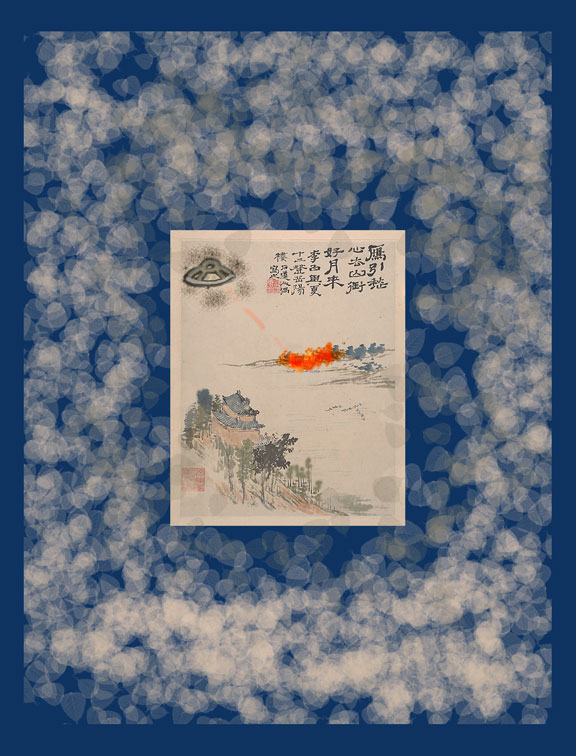 鴈引愁
心去山銜
好月來
李白與夏
十二登岳陽
樓